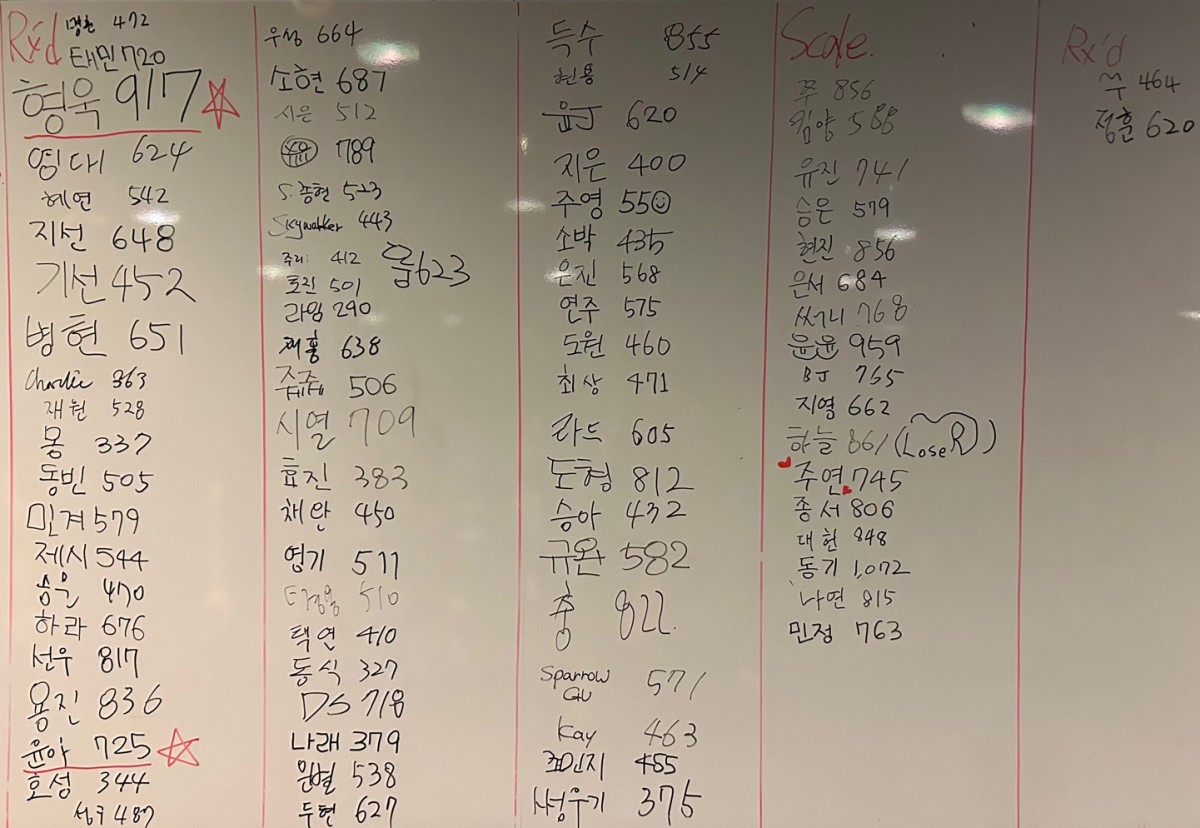 Rx'd
명훈 472
태민 720
형욱 917
영대 624
혜연 542
지선 648
기선 452
병현 651
Charlie 363
재원 528
몽 337
동빈 505
민겨 579
제시 544
승윤 470
하라 676
선우 817
용진 836
윤아 725
호성 344
성구 487
우성 664
소현 687
시은 512
789
S. 종현 523
Skywalker 443
주리 412
윱 623
효진 501
라임 290
재홍 638
쥽쥽 506
시열 709
효진 383
채란 450
영기 511
510
택연 410
동식 327
DS 718
나래 379
은별 538
두현 627
득수 855
현용 514
윤J 620
지은 400
주영 55☺
소박 435
은진 568
연주 575
도원 460
최상 471
라드 605
도형 812
승아 432
규완 582
훙 822.
Sparrow
571
Kay 463
조민지 455
서성우기 375
Scale.
쭈 856
김양 588
유진 741
승은 579
현진 856
은서 684
써니 768
윤윤 959
BJ 765
지영 662
하늘 861 (LoseR)
주연 745
종서 806
대헌 848
동기 1,072
나연 815
민정 763
Rx'd
쑤 464
정훈 620